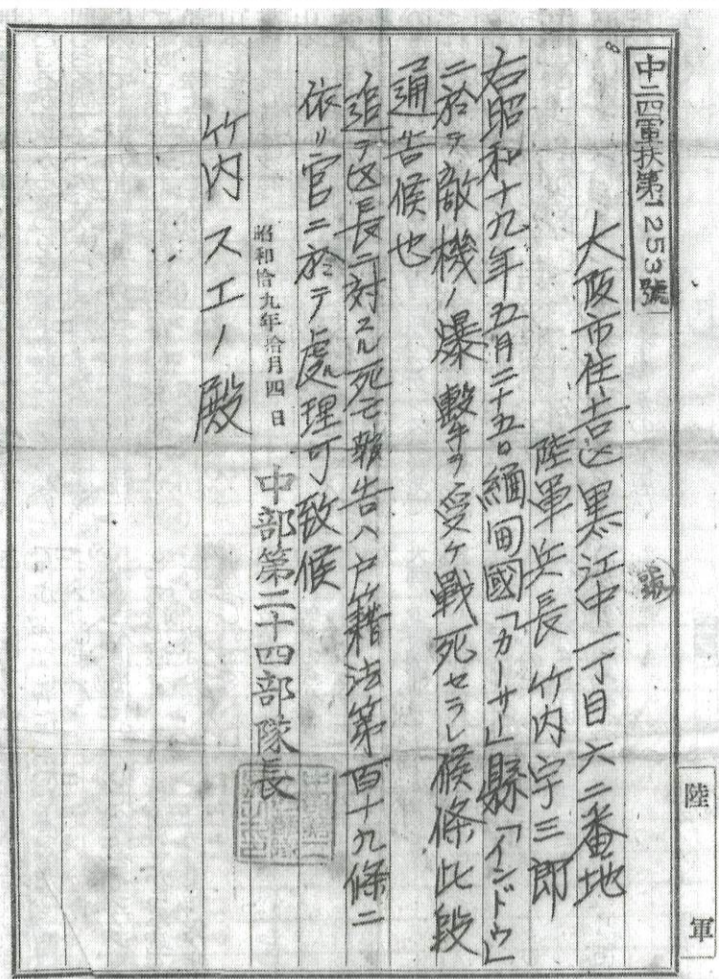 中二四軍扶第1253號
大阪市住吉区黒江中一丁目六二番地
陸軍兵長 竹内宇三郎
右昭和十九年五月二十五日緬甸國「カーサ」縣「インドウ」
ニ於テ敵機ノ爆撃ヲ受ケ戰死セラレ候條此段
通告候也
追テ区長ニ対スル死亡報告ハ戸籍法第百十九條ニ
依リ官ニ於テ處理可致候
昭和拾九年拾月四日
中部第二十四部隊長
竹内スエノ殿
陸軍